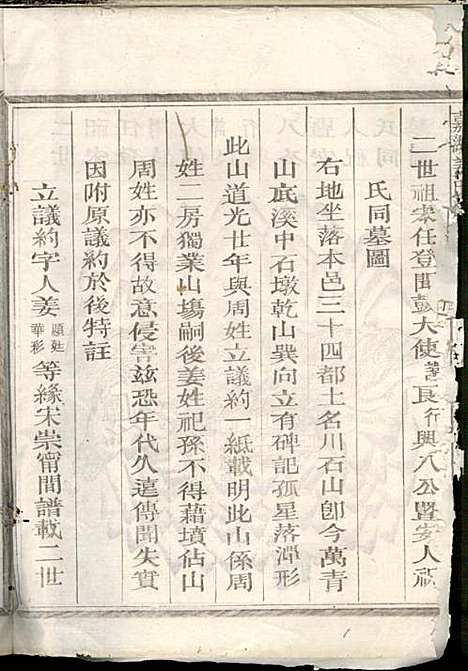 二世祖宋任登聞鼓大使諱良行興八公暨安人祝
氏同墓圖
右地坐落本邑三十四都土名川石山卽今萬青
山底溪中石墩乾山巽向立有碑記孤星落潭形
此山道光廿年與周姓立議約一紙載明此山係周
姓二房獨業山塲嗣後姜姓祀孫不得藉墳佔山
周姓亦不得故意侵害茲恐年代久遠傳聞失實
因附原議約於後特註
立議約字人姜顯姓華彩等緣宋崇甯間譜載二世